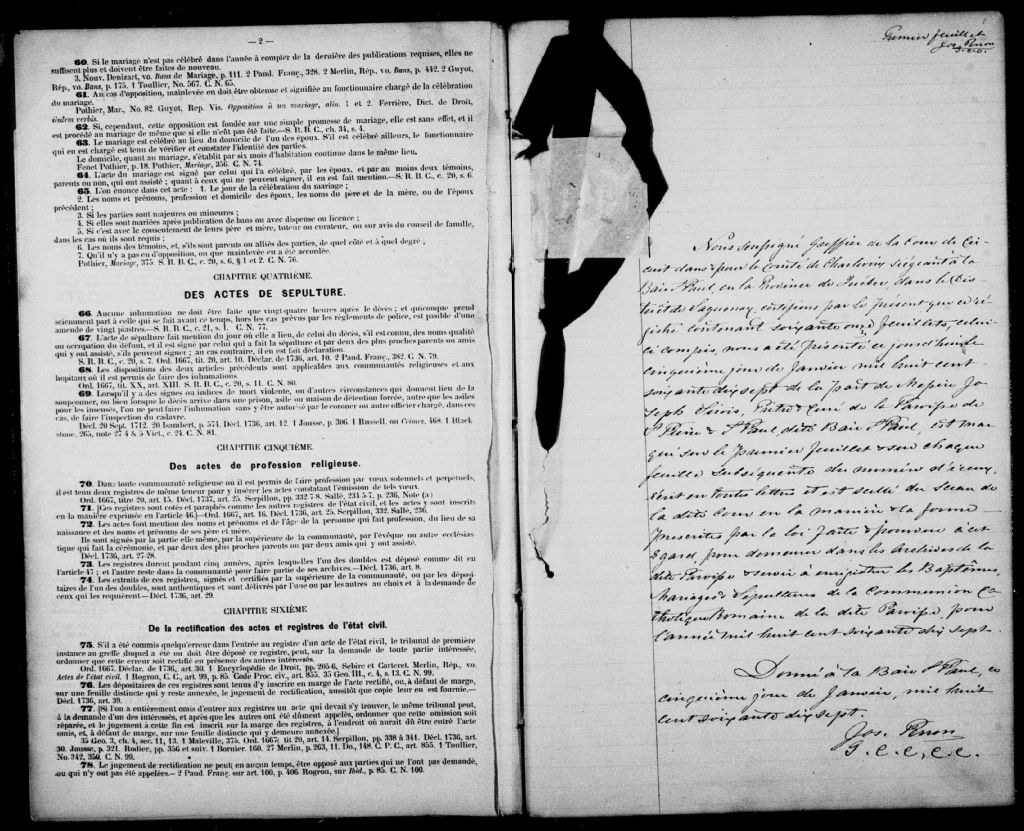 — 2 —
60. Si le mariage n'est pas célébré dans l'année à compter de la dernière des publications requises, elles ne
suffisent plus et doivent être faites de nouveau.
3. Nouv. Denizart, vo. Bans de Mariage, p. 111. 2 Pand. Franç., 328. 2 Merlin, Rép., vo. Bans, p. 442. 2 Guyot,
Rép., vo. Bans, p. 175. 1 Toullier, No. 567. C. N. 65.
61. Au cas d'opposition, mainlevée en doit être obtenue et signifiée au fonctionnaire chargé de la célébration
du mariage.
Pothier, Mar., No. 82. Guyot, Rep. Vis. Opposition à un mariage, alin. 1 et 2. Ferrière, Dict. de Droit,
iisdem verbis.
62. Si, cependant, cette opposition est fondée sur une simple promesse de mariage, elle est sans effet, et il
est procédé au mariage de même que si elle n'eût pas été faite.—S. R. B. C., ch. 34, s. 4.
63. Le mariage est célébré au lieu du domicile de l'un des époux. S'il est célébré ailleurs, le fonctionnaire
qui en est chargé est tenu de vérifier et constater l'identité des parties.
Le domicile, quant au mariage, s'établit par six mois d'habitation continue dans le même lieu.
Fenet Pothier, p. 18. Pothier, Mariage, 356. C. N. 74.
64. L'acte du mariage est signé par celui qui l'a célébré, par les époux, et par au moins deux témoins,
parents ou non, qui ont assisté ; quant à ceux qui ne peuvent signer, il en est fait mention.—S. R. B. C., c. 20, s. 6.
65. L'on énonce dans cet acte : 1. Le jour de la célébration du mariage ;
2. Les noms et prénoms, profession et domicile des époux, les noms du père et de la mère, ou de l'époux
précédent ;
3. Si les parties sont majeures ou mineures ;
4. Si elles sont mariées après publication de bans ou avec dispense ou licence ;
5. Si c'est avec le consentement de leurs père et mère, tuteur ou curateur, ou sur avis du conseil de famille,
dans les cas où ils sont requis ;
6. Les noms des témoins, et, s'ils sont parents ou alliés des parties, de quel côté et à quel degré ;
7. Qu'il n'y a pas eu d'opposition, ou que mainlevée en a été accordée.
Pothier, Mariage, 375. S. R. B. C., c. 20, s. 6, § 1 et 2. C. N. 76.
CHAPITRE QUATRIÈME.
DES ACTES DE SEPULTURE.
66. Aucune inhumation ne doit être faite que vingt-quatre heures après le décès ; et quiconque prend
sciemment part à celle qui se fait avant ce temps, hors les cas prévus par les règlements de police, est passible d'une
amende de vingt piastres.—S. R. B. C., c. 21, s. 1. C. N. 77.
67. L'acte de sépulture fait mention du jour où elle a lieu, de celui du décès, s'il est connu, des noms qualité
ou occupation du défunt, et il est signé par celui qui a fait la sépulture et par deux des plus proches parents ou amis
qui y ont assisté, s'ils peuvent signer ; au cas contraire, il en est fait déclaration.
S. R. B. C., c. 20, s. 7. Ord. 1667, tit. 20, art. 10. Déclar. de 1736, art. 10. 2 Pand. Franç., 382. C. N. 79.
68. Les dispositions des deux articles précédents sont applicables aux communautés religieuses et aux
hôpitaux où il est permis de faire des inhumations.
Ord. 1667, tit. XX, art. XIII. S. R. B. C., c. 20, s. 11. C. N. 80.
69. Lorsqu'il y a des signes ou indices de mort violente, ou d'autres circonstances qui donnent lieu de la
soupçonner, ou bien lorsque le décès arrive dans une prison, asile ou maison de détention forcée, autre que les asiles
pour les insensés, l'on ne peut faire l'inhumation sans y être autorisé par le coroner ou autre officier chargé, dans ces
cas, de faire l'inspection du cadavre.
Décl. 20 Sept. 1712. 20 Isambert, p. 574. Décl. 1736, art. 12. 1 Jousse, p. 306. 1 Russell, on Crimes, 468. 1 Black
stone, 265, note 27 4 & 5 Vict., c. 24. C. N. 81.
CHAPITRE CINQUIÈME.
Des actes de profession religieuse.
70. Dans toute communauté religieuse où il est permis de faire profession par vœux solennels et perpétuels,
il est tenu deux registres de même teneur pour y insérer les actes constatant l'émission de tels vœux.
Ord. 1667, titre 20, art. 15. Décl. 1737, art. 25. Serpillon, pp. 332-7 8. Sallé, 234-5-7, p. 236, Note (a)
71. [Ces registres sont cotés et paraphés comme les autres registres de l'état civil, et les actes y sont inscrits
en la manière exprimée en l'article 46.]—Ord. 1667, art. 16. Décl. 1736, art. 25. Serpillon, 332. Sallé, 236.
72. Les actes font mention des noms et prénoms et de l'âge de la personne qui fait profession, du lieu de sa
naissance et des noms et prénoms de ses père et mère.
Ils sont signés par la partie elle même, par la supérieure de la communauté, par l'évêque ou autre ecclésias-
tique qui fait la cérémonie, et par deux des plus proches parents ou par deux amis qui y ont assisté.
Décl. 1736, art. 27-28.
73. Les registres durent pendant cinq années, après lesquelles l'un des doubles est déposé comme dit en
l'article 47 ; et l'autre reste dans la communauté pour faire partie de ses archives.—Décl. 1736, art. 8.
74. Les extraits de ces registres, signés et certifiés par la supérieure de la communauté, ou par les dépositai-
taires de l'un des doubles, sont authentiques et sont délivrés par l'une ou par les autres au choix et à la demande de
ceux qui les requièrent.—Décl. 1736, art. 29.
CHAPITRE SIXIÈME
De la rectification des actes et registres de l'état civil.
75. S'il a été commis quelqu'erreur dans l'entrée au registre d'un acte de l'état civil, le tribunal de première
instance au greffe duquel a été ou doit être déposé ce registre, peut, sur la demande de toute partie intéressée,
ordonner que cette erreur soit rectifié en présence des autres intéressés.
Ord. 1667. Déclar. de 1736, art. 30. 1 Encyclopédie de Droit, pp. 205-6, Sebire et Carteret. Merlin, Rép., vo.
Actes de l'état civil. 1 Rogron, C. C., art. 99, p. 85. Code Proc. civ., art. 855. 35 Geo. III., c. 4, s. 13. C. N. 99.
76. Les dépositaires de ces registres sont tenus d'y inscrire en marge de l'acte rectifié, ou, à défaut de marge,
sur une feuille distincte qui y reste annexée, le jugement de rectification, aussitôt que copie leur en est fournie.—
Décl. 1736, art. 39.
77. [Si l'on a entièrement omis d'entrer aux registres un acte qui devait s'y trouver, le même tribunal peut,
à la demande d'un des intéressés, et après que les autres ont été dûment appelés, ordonner que cette omission soit
réparée, et le jugement à cette fin est inscrit sur la marge des registres, à l'endroit où aurait dû être entré l'acte
omis, et, à défaut de marge, sur une feuille distincte qui y demeure annexée.]
35 Geo. 3, ch. 4, sec. 11, 13. 1 Maleville, 375. Ord. 1667, tit. 20, art. 14. Serpillon, pp. 338 à 341. Décl. 1736, art.
30. Jousse, p. 321. Rodier, pp. 356 et suiv. 1 Bornier. 160. 27 Merlin, p. 263, 11. Do., 148. C. P. C., art. 855. 1 Toullier,
No. 342, 350. C. N. 99.
78. Le jugement de rectification ne peut, en aucun temps, être opposé aux parties qui ne l'ont pas demandé,
ou qui n'y ont pas été appelées.— 2 Pand. Franç. sur art. 100, p. 406. Rogron, sur Ibid., p. 85. C. N. 100.
Premier feuillet
Jos. Perron
Nous soussigné Greffier de la Cour de Cir-
cuit dans & pour le Comté de Charlevoix siégeant à la
Baie St Paul, en la Province de Québec, dans le Dis-
trict de Saguenay, certifions par le présent que ce ré-
gistre contenant soixante onze feuillets, celui-
ci compris, nous a été présenté ce jourd'hui le
cinquième jour de Janvier mil huit cent
soixante dix sept de la part de Messire Jo-
seph Sirois, Prêtre & Curé de la Paroisse de
St Pierre & St Paul, dite Baie St Paul, est mar-
qué sur le premier feuillet & sur chaque
feuille subséquente du numéro d'iceux,
écrit en toutes lettres et est scellé du Sceau de
la dite Cour en la manière & la forme
prescrites par la loi faite & pourvue à cet
égard, pour demeurer dans les archives de la
dite Paroisse & servir à enregistrer les Baptêmes,
Mariages & Sépultures de la Communion Ca-
tholique Romaine de la dite Paroisse, pour
l'année mil huit cent soixante dix sept.
Donné à la Baie St Paul, ce
cinquième jour de Janvier, mil huit
cent soixante dix sept.
Jos. Perron
G. C. C, C. C.